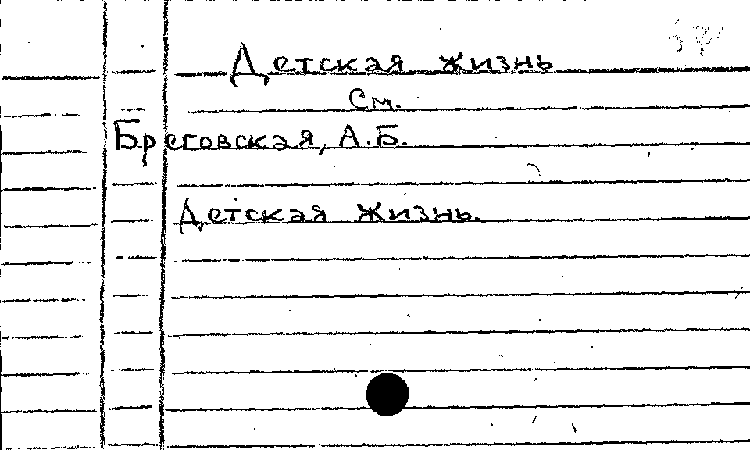 Детская жизнь
см.
Бреговская, А.Б.
Детская жизнь.